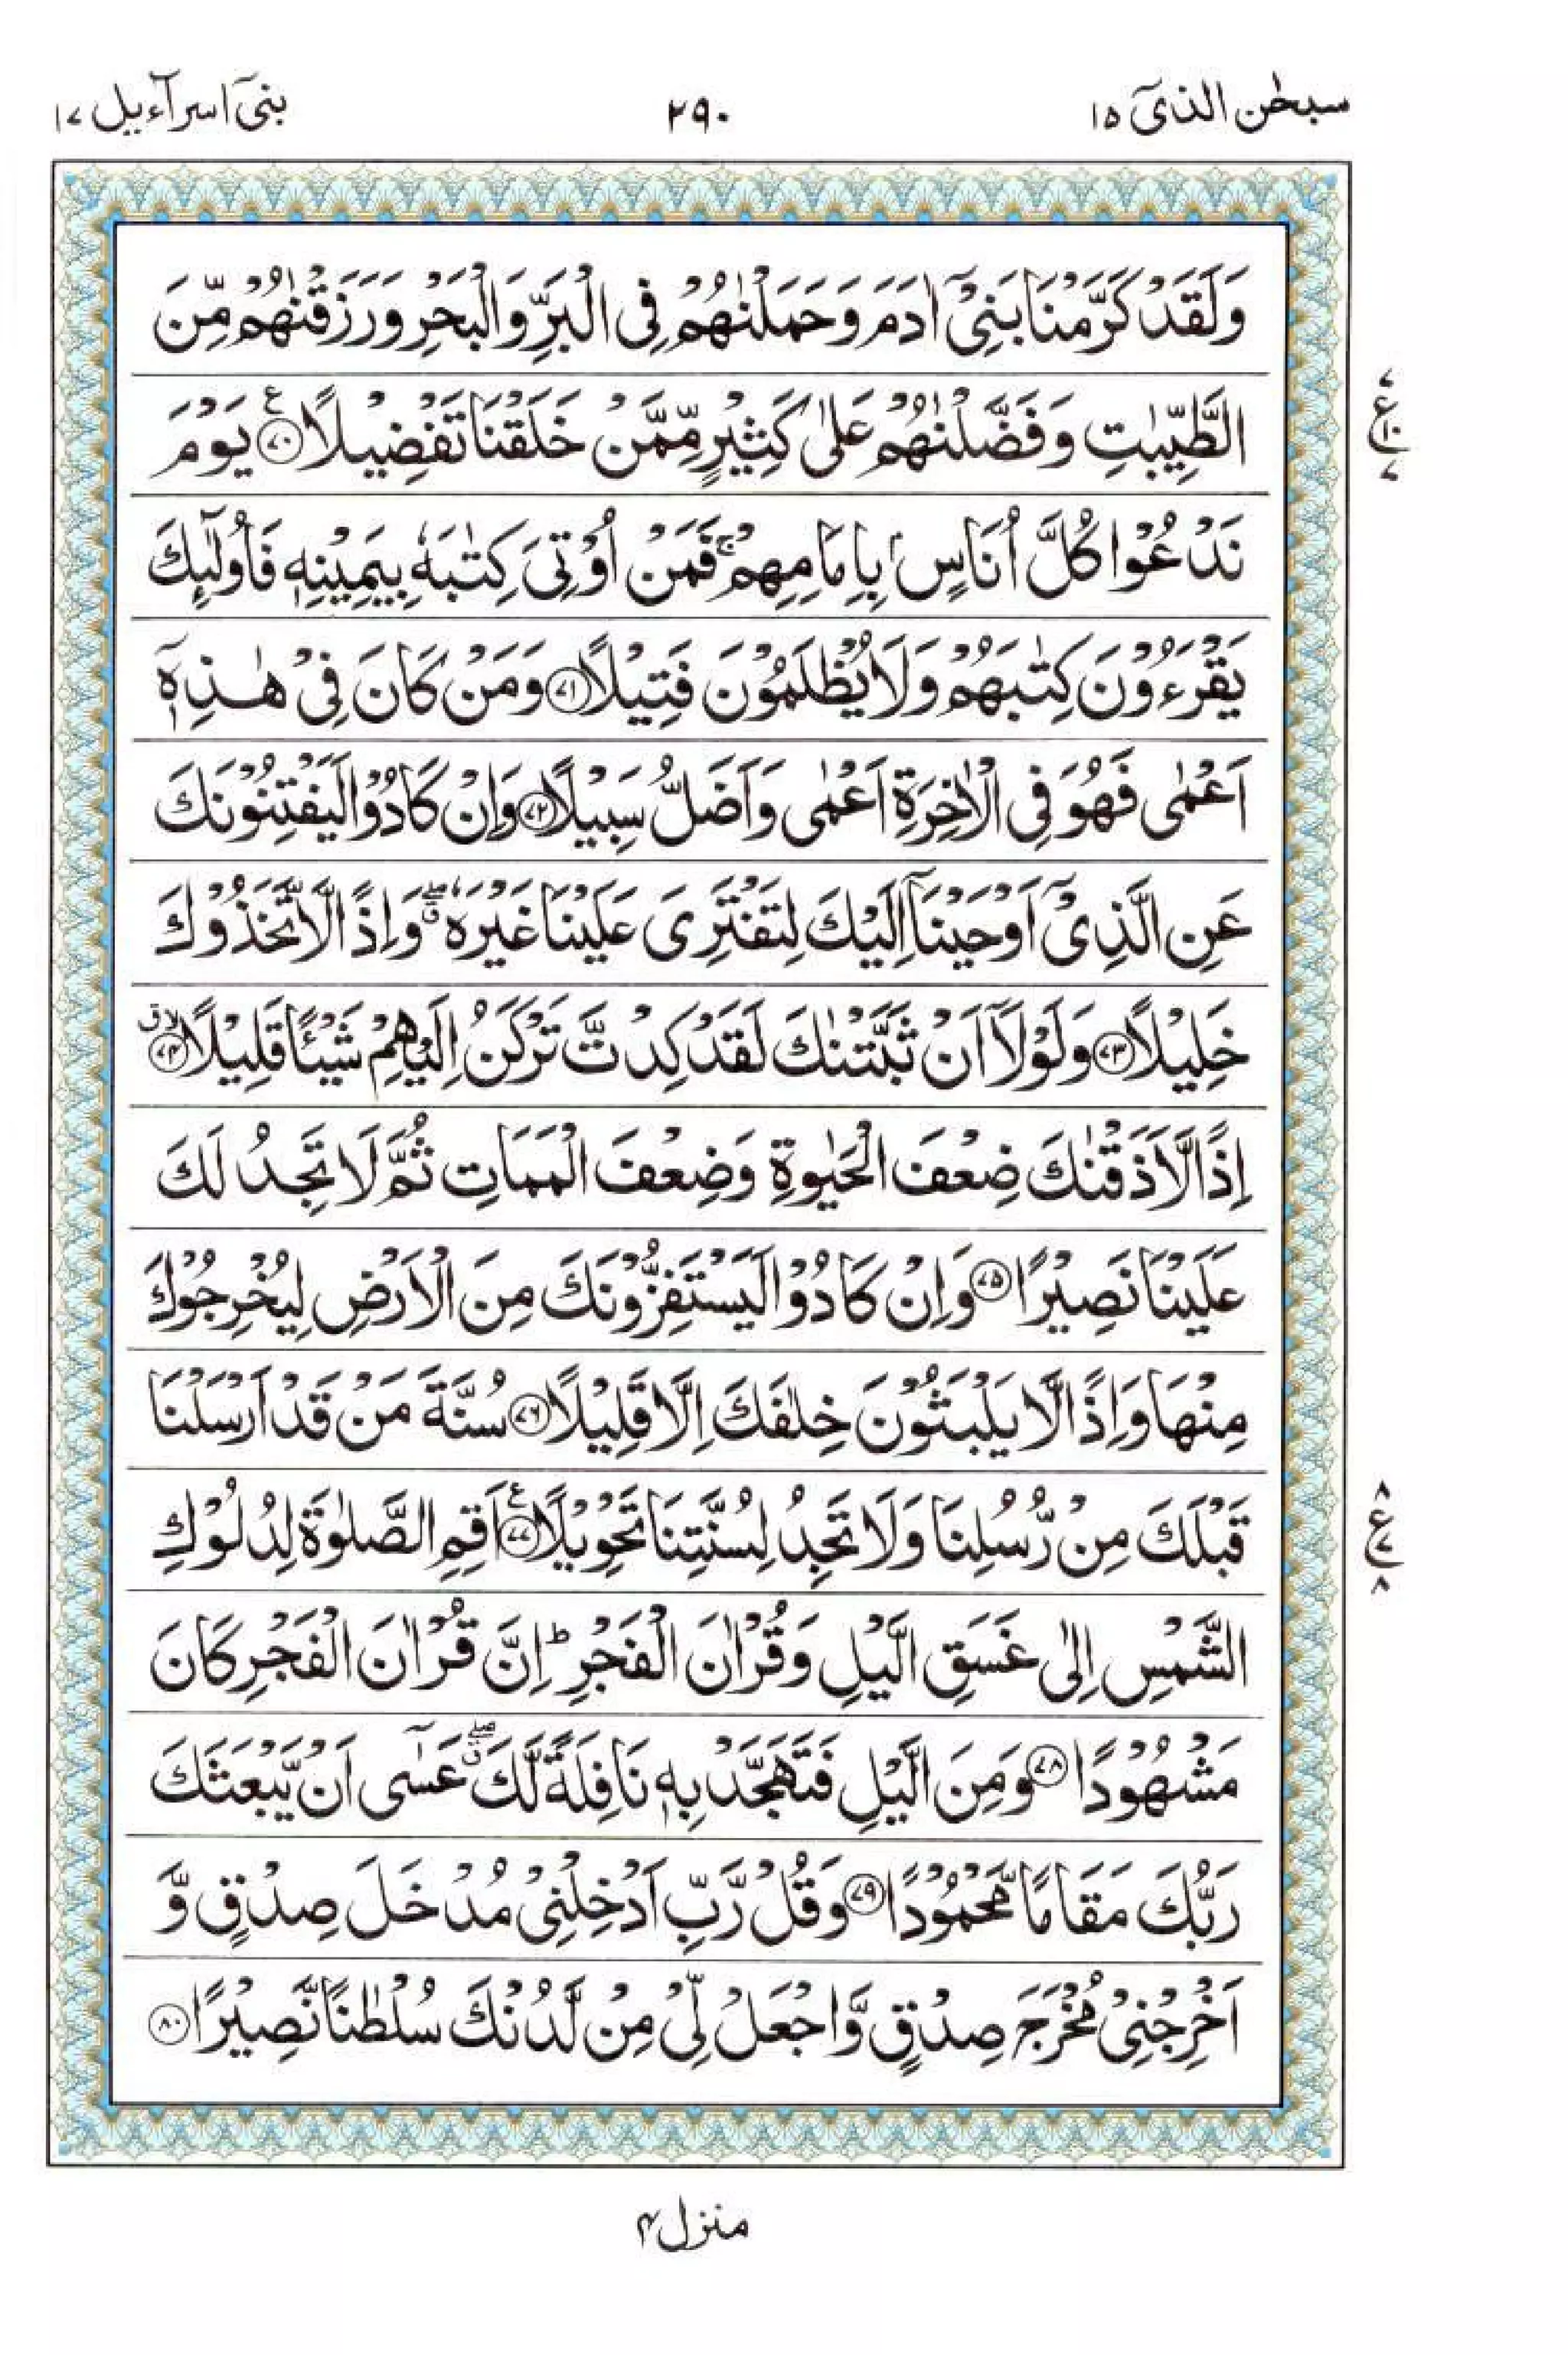 سبحٰن الذیٓ ۱۵
۲۹۰
بنیٓ اسرآءیل ۱۷
وَلَقَدْ كَرَّمْنَا بَنِیْۤ اٰدَمَ وَحَمَلْنٰهُمْ فِی الْبَرِّ وَالْبَحْرِ وَرَزَقْنٰهُمْ مِّنَ
الطَّیِّبٰتِ وَفَضَّلْنٰهُمْ عَلٰی كَثِیْرٍ مِّمَّنْ خَلَقْنَا تَفْضِیْلًا ۧ﴿۷۰﴾ یَوْمَ
ع
۷
۱۰
۷
نَدْعُوْا كُلَّ اُنَاسٍۭ بِاِمَامِهِمْ ۚ فَمَنْ اُوْتِیَ كِتٰبَهٗ بِیَمِیْنِهٖ فَاُولٰٓىِٕكَ
یَقْرَءُوْنَ كِتٰبَهُمْ وَلَا یُظْلَمُوْنَ فَتِیْلًا ﴿۷۱﴾ وَمَنْ كَانَ فِیْ هٰذِهٖۤ
اَعْمٰی فَهُوَ فِی الْاٰخِرَةِ اَعْمٰی وَاَضَلُّ سَبِیْلًا ﴿۷۲﴾ وَاِنْ كَادُوْا لَیَفْتِنُوْنَكَ
عَنِ الَّذِیْۤ اَوْحَیْنَاۤ اِلَیْكَ لِتَفْتَرِیَ عَلَیْنَا غَیْرَهٗ ۖۗ وَاِذًا لَّاتَّخَذُوْكَ
خَلِیْلًا ﴿۷۳﴾ وَلَوْلَاۤ اَنْ ثَبَّتْنٰكَ لَقَدْ كِدْتَّ تَرْكَنُ اِلَیْهِمْ شَیْـًٔا قَلِیْلًا ۙۗ﴿۷۴﴾
اِذًا لَّاَذَقْنٰكَ ضِعْفَ الْحَیٰوةِ وَضِعْفَ الْمَمَاتِ ثُمَّ لَا تَجِدُ لَكَ
عَلَیْنَا نَصِیْرًا ﴿۷۵﴾ وَاِنْ كَادُوْا لَیَسْتَفِزُّوْنَكَ مِنَ الْاَرْضِ لِیُخْرِجُوْكَ
مِنْهَا وَاِذًا لَّا یَلْبَثُوْنَ خِلٰفَكَ اِلَّا قَلِیْلًا ﴿۷۶﴾ سُنَّةَ مَنْ قَدْ اَرْسَلْنَا
قَبْلَكَ مِنْ رُّسُلِنَا وَلَا تَجِدُ لِسُنَّتِنَا تَحْوِیْلًا ۧ﴿۷۷﴾ اَقِمِ الصَّلٰوةَ لِدُلُوْكِ
ع
۸
۷
۸
الشَّمْسِ اِلٰی غَسَقِ الَّیْلِ وَقُرْاٰنَ الْفَجْرِ ؕ اِنَّ قُرْاٰنَ الْفَجْرِ كَانَ
مَشْهُوْدًا ﴿۷۸﴾ وَمِنَ الَّیْلِ فَتَهَجَّدْ بِهٖ نَافِلَةً لَّكَ ۖۗ عَسٰۤی اَنْ یَّبْعَثَكَ
رَبُّكَ مَقَامًا مَّحْمُوْدًا ﴿۷۹﴾ وَقُلْ رَّبِّ اَدْخِلْنِیْ مُدْخَلَ صِدْقٍ وَّ
اَخْرِجْنِیْ مُخْرَجَ صِدْقٍ وَّاجْعَلْ لِّیْ مِنْ لَّدُنْكَ سُلْطٰنًا نَّصِیْرًا ﴿۸۰﴾
منزل ۴